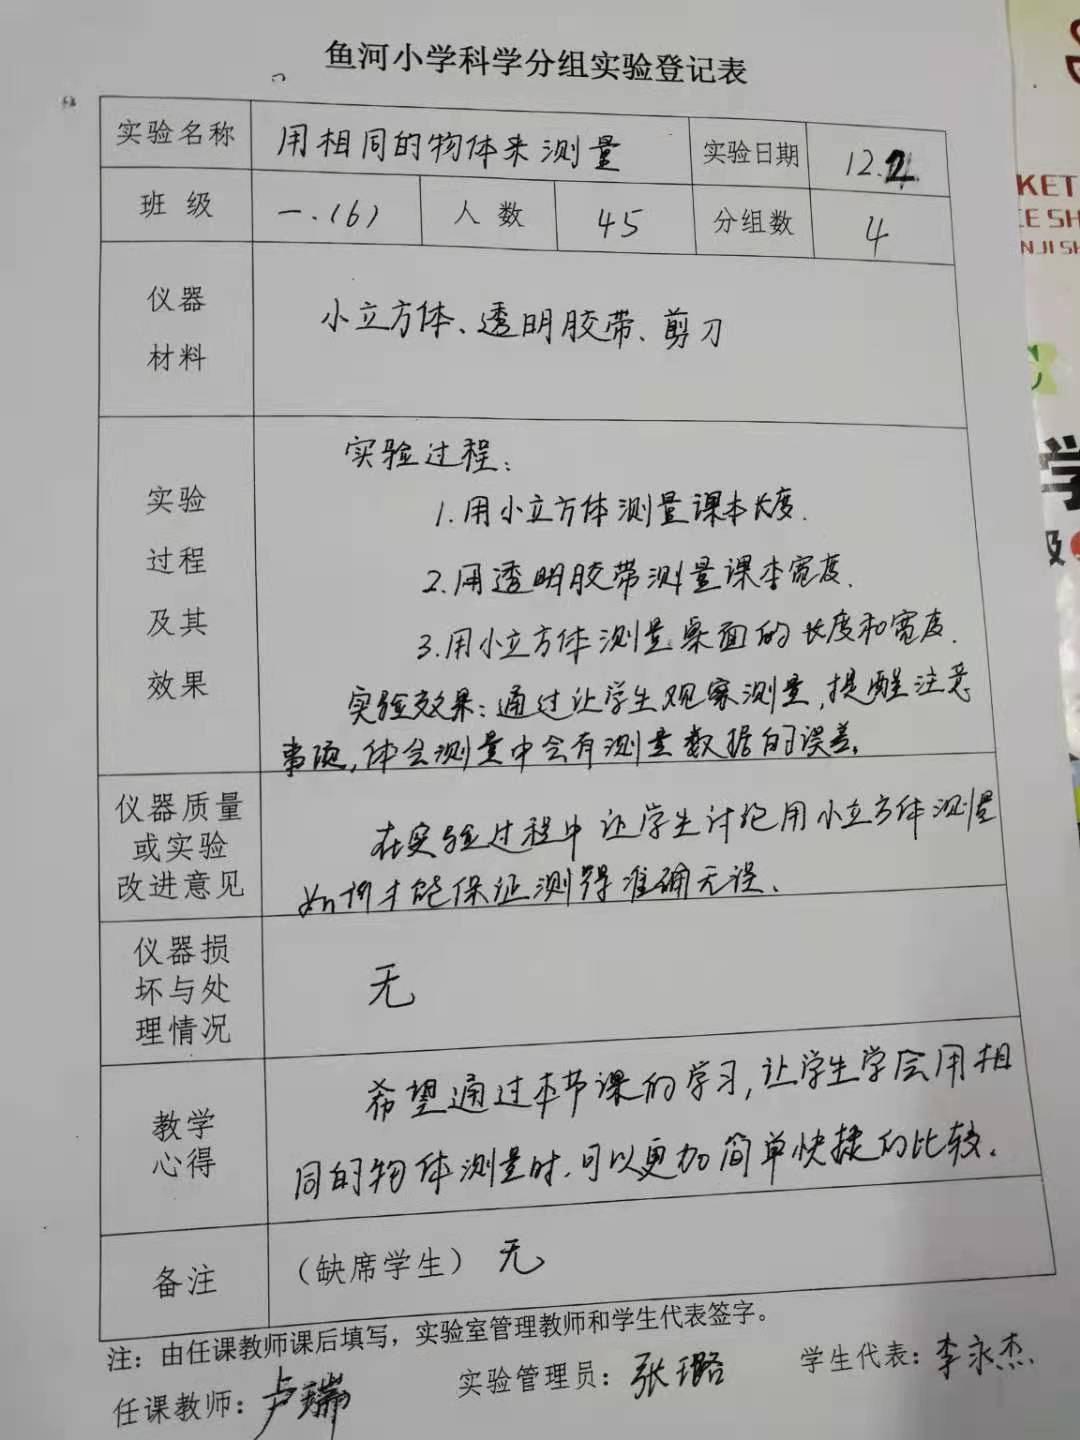 鱼河小学科学分组实验登记表
实验名称 用相同的物体来测量 实验日期 12.2.
班级 一.(6) 人数 45 分组数 4
仪器
材料
小立方体、透明胶带、剪刀
实验
过程
及其
效果
实验过程:
1.用小立方体测量课本长度.
2.用透明胶带测量课本宽度.
3.用小立方体测量桌面的长度和宽度.
实验效果:通过让学生观察测量,提醒注意
事项,体会测量中会有测量数据的误差。
仪器质量
或实验
改进意见
在实验过程中让学生讨论用小立方体测量
如何才能保证测得准确无误、
仪器损
坏与处
理情况
无
教学
心得
希望通过本节课的学习,让学生学会用相
同的物体测量时.可以更加简单快捷的比较.
备注 (缺席学生) 无
注:由任课教师课后填写,实验室管理教师和学生代表签字。
任课教师:卢瑞 实验管理员:张璐 学生代表:李永杰
KET
CE SH
NJI SH
学
级